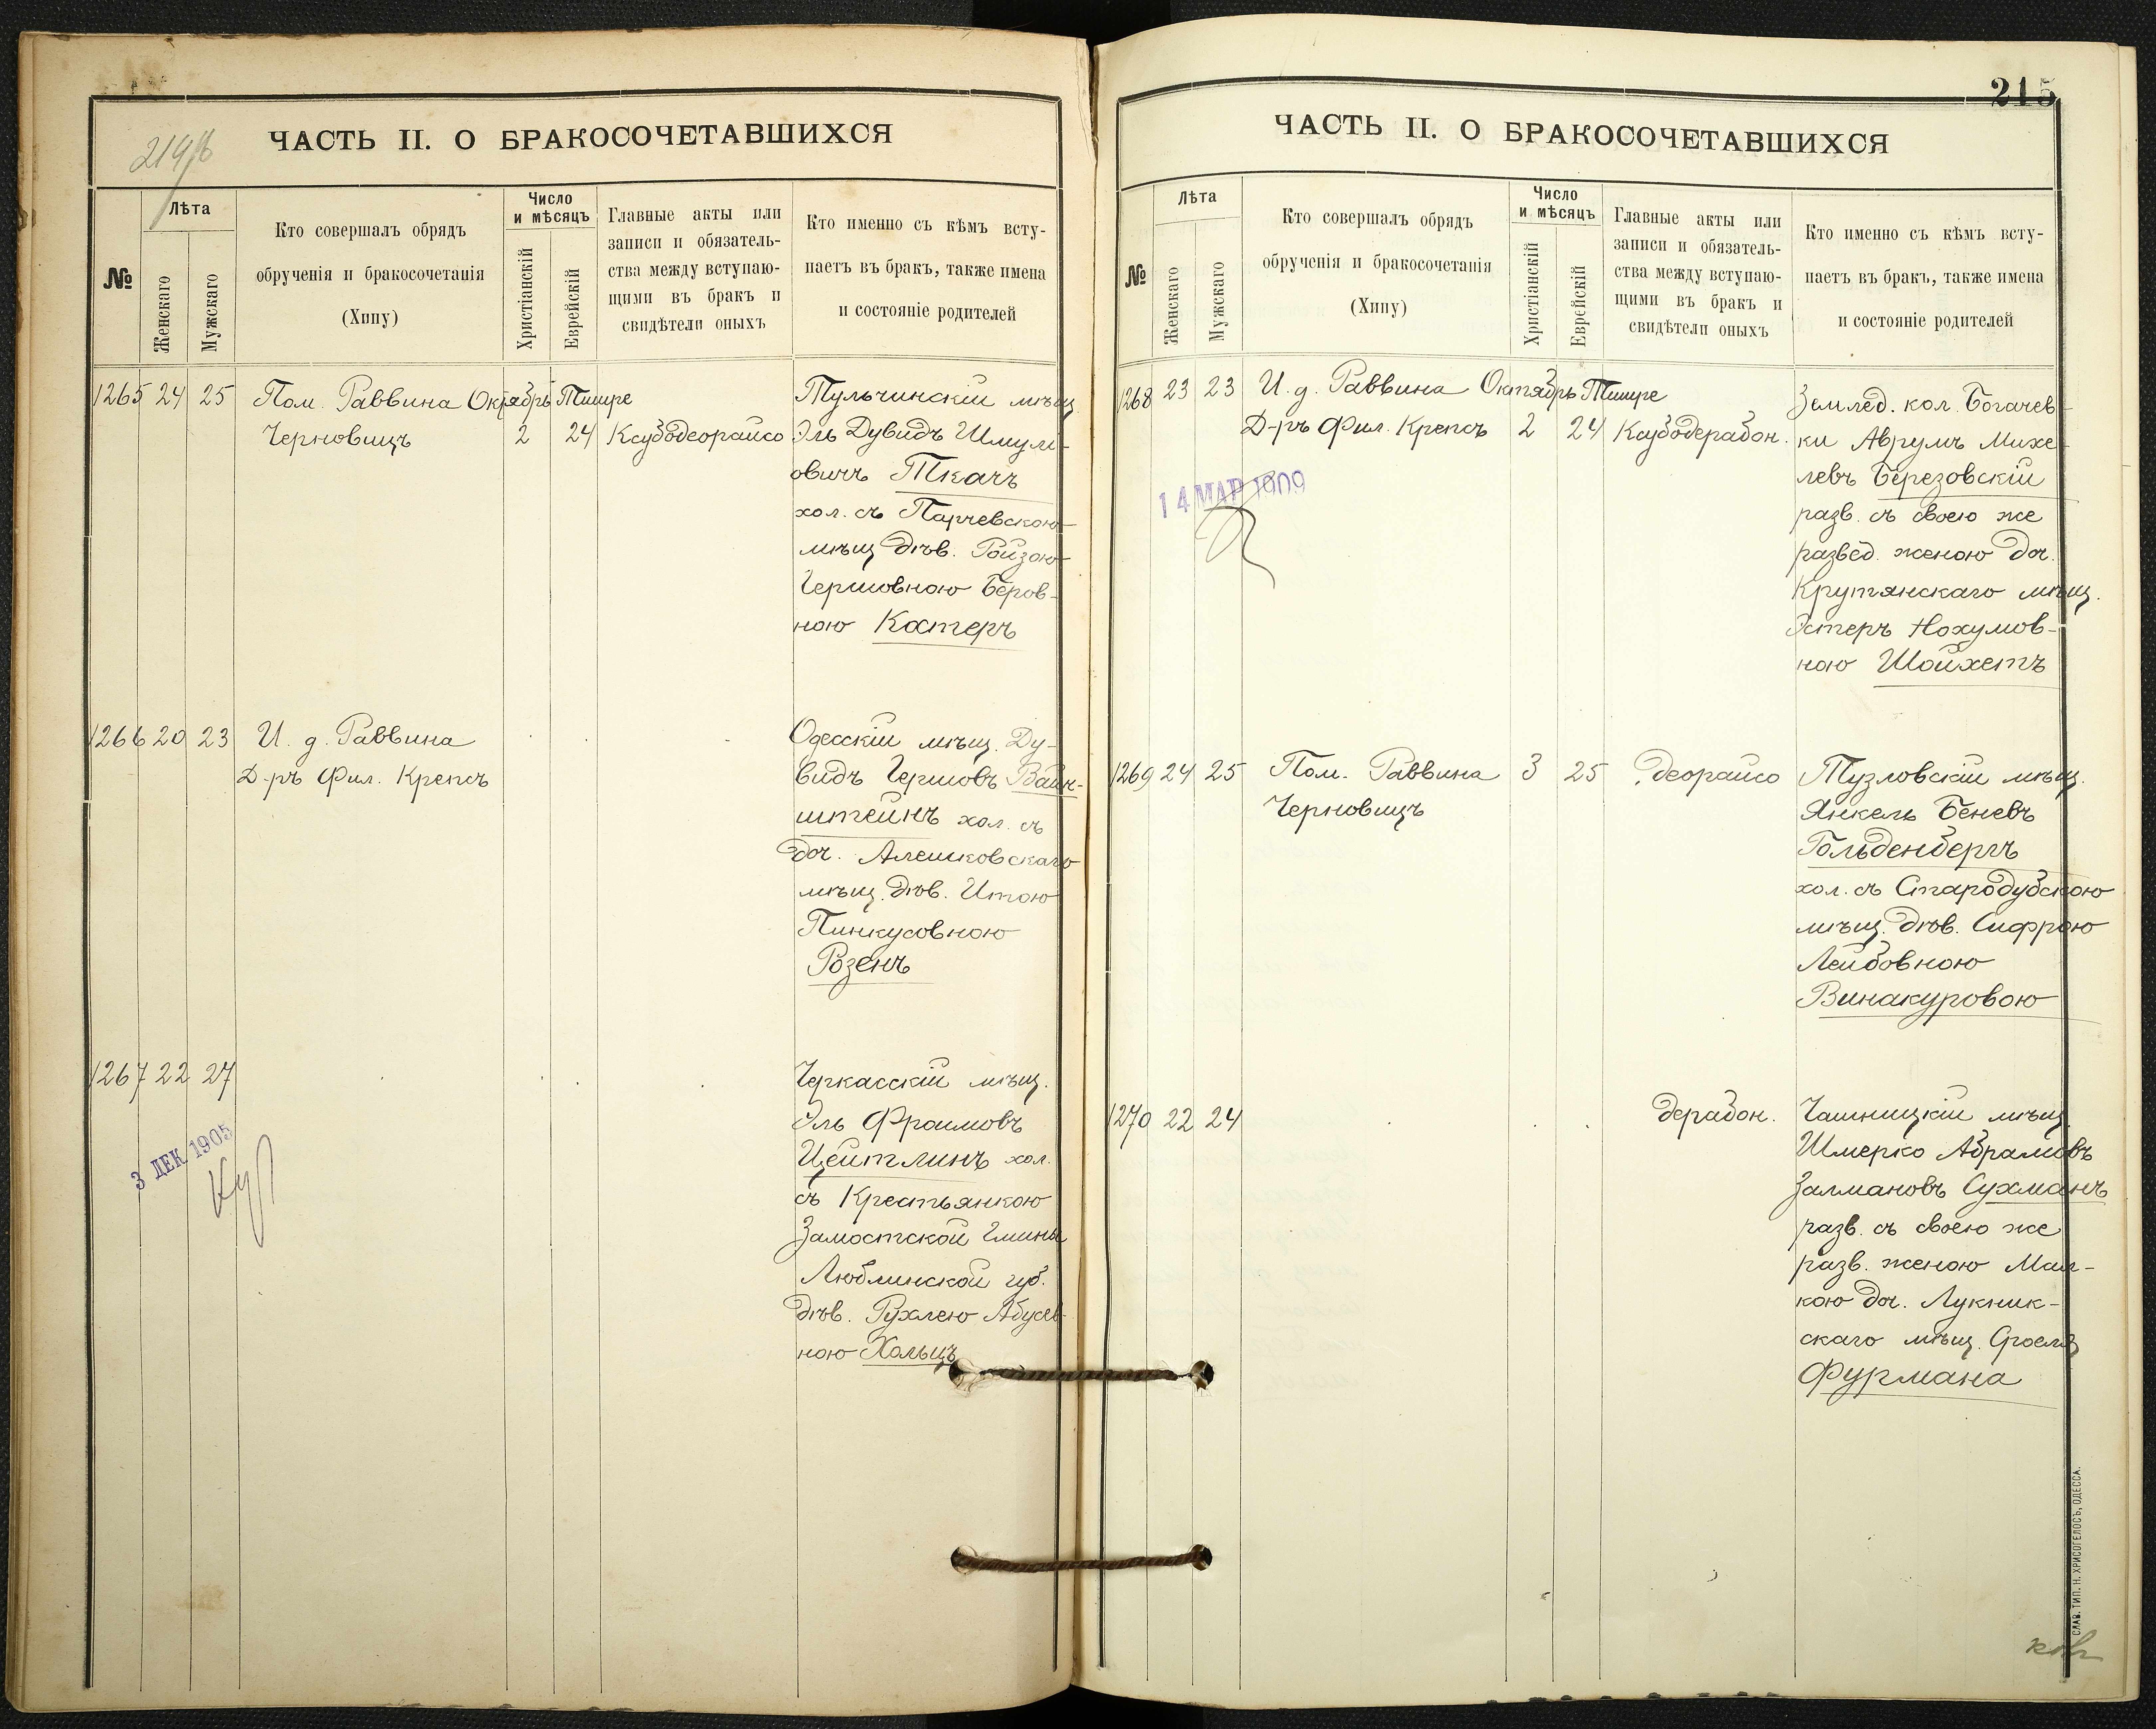 214/б
ЧАСТЬ II. О БРАКОСОЧЕТАВШИХСЯ
№
Лѣта
Женскаго
Мужскаго
Кто совершалъ обрядъ
обрученія и бракосочетанія
(Хипу)
Число
и мѣсяцъ
Христіанскій
Еврейскій
Главные акты или
записи и обязатель-
ства между вступаю-
щими въ бракъ и
свидѣтели оныхъ
Кто именно съ кѣмъ всту-
паетъ въ бракъ, также имена
и состояніе родителей
1265 24 25 Пом. Раввина Октябрь Тишре Тульчинскій мѣщ.
Черновицъ 2 24 Ксубодеорайсо Эль Дувидъ Шмуль-
овичъ Ткачъ
хол. съ Парчевскою
мѣщ дѣв. Ройзою
Гершовною Беров-
ною Костеръ
1266 20 23 И. д. Раввина Одесскій мѣщ. Ду-
Д-ръ Фил. Крепсъ видъ Гершовъ Вайн-
штейнъ хол. съ
доч. Алешковскаго
мѣщ. дѣв. Итою
Пинкусовною
Розенъ
1267 22 27 Черкасскій мѣщ.
Эль Фроимовъ
Цейтлинъ хол.
съ Крестьянкою
Замостской гмины
Люблинской губ.
дѣв. Рухлею Абусев-
ною Хольцъ
3 ДЕК 1905
215
ЧАСТЬ II. О БРАКОСОЧЕТАВШИХСЯ
№
Лѣта
Женскаго
Мужскаго
Кто совершалъ обрядъ
обрученія и бракосочетанія
(Хипу)
Число
и мѣсяцъ
Христіанскій
Еврейскій
Главные акты или
записи и обязатель-
ства между вступаю-
щими въ бракъ и
свидѣтели оныхъ
Кто именно съ кѣмъ всту-
паетъ въ бракъ, также имена
и состояніе родителей
1268 23 23 И. д. Раввина Октябрь Тишре Землед. кол. Богачев-
Д-ръ Фил. Крепсъ 2 24 Ксубодерабон. ки Аврумъ Михе-
левъ Березовскій
разв. съ своею же
развед. женою доч.
Крутянскаго мѣщ.
Эстеръ Нохумов-
ною Шойхетъ
14 МАР 1909
1269 24 25 Пом. Раввина 3 25 деорайсо Тузловскій мѣщ.
Черновицъ Янкель Беневъ
Гольденбергъ
хол. съ Стародубскою
мѣщ. дѣв. Сифрою
Лейбовною
Винакуровою
1270 22 24 дерабон. Чашницкій мѣщ.
Шмерко Абрамовъ
Залмановъ Сухманъ
разв. съ своею же
разв. женою Мал-
кою доч. Лукник-
скаго мѣщ. Сроеля
Фурмана
СЛАВ. ТИП. Н. ХРИСОГЕЛОСЪ, ОДЕССА.